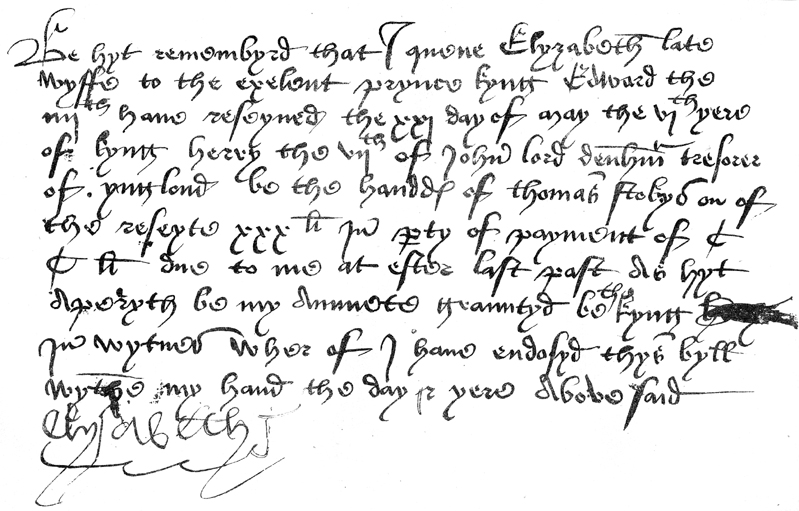 Be hyt remembyrd that I quene Elyzabeth late
wyffe to the exelent prynce kyng Edward the
iiijth have reseyued the xxj day of may the vjth yere
of kyng herry the vijth of John lord denham tresorer
of ynglond be the handdes of thomas stokys on of
the reseyte xxx li in pty of payment of C
C li due to me at ester last past As hyt
Aperyth be my Annuete grauntyd be the kyng
in wytnes wher of I have endosyd thys byll
wythe my hand the day & yere Above said
Elysabeth